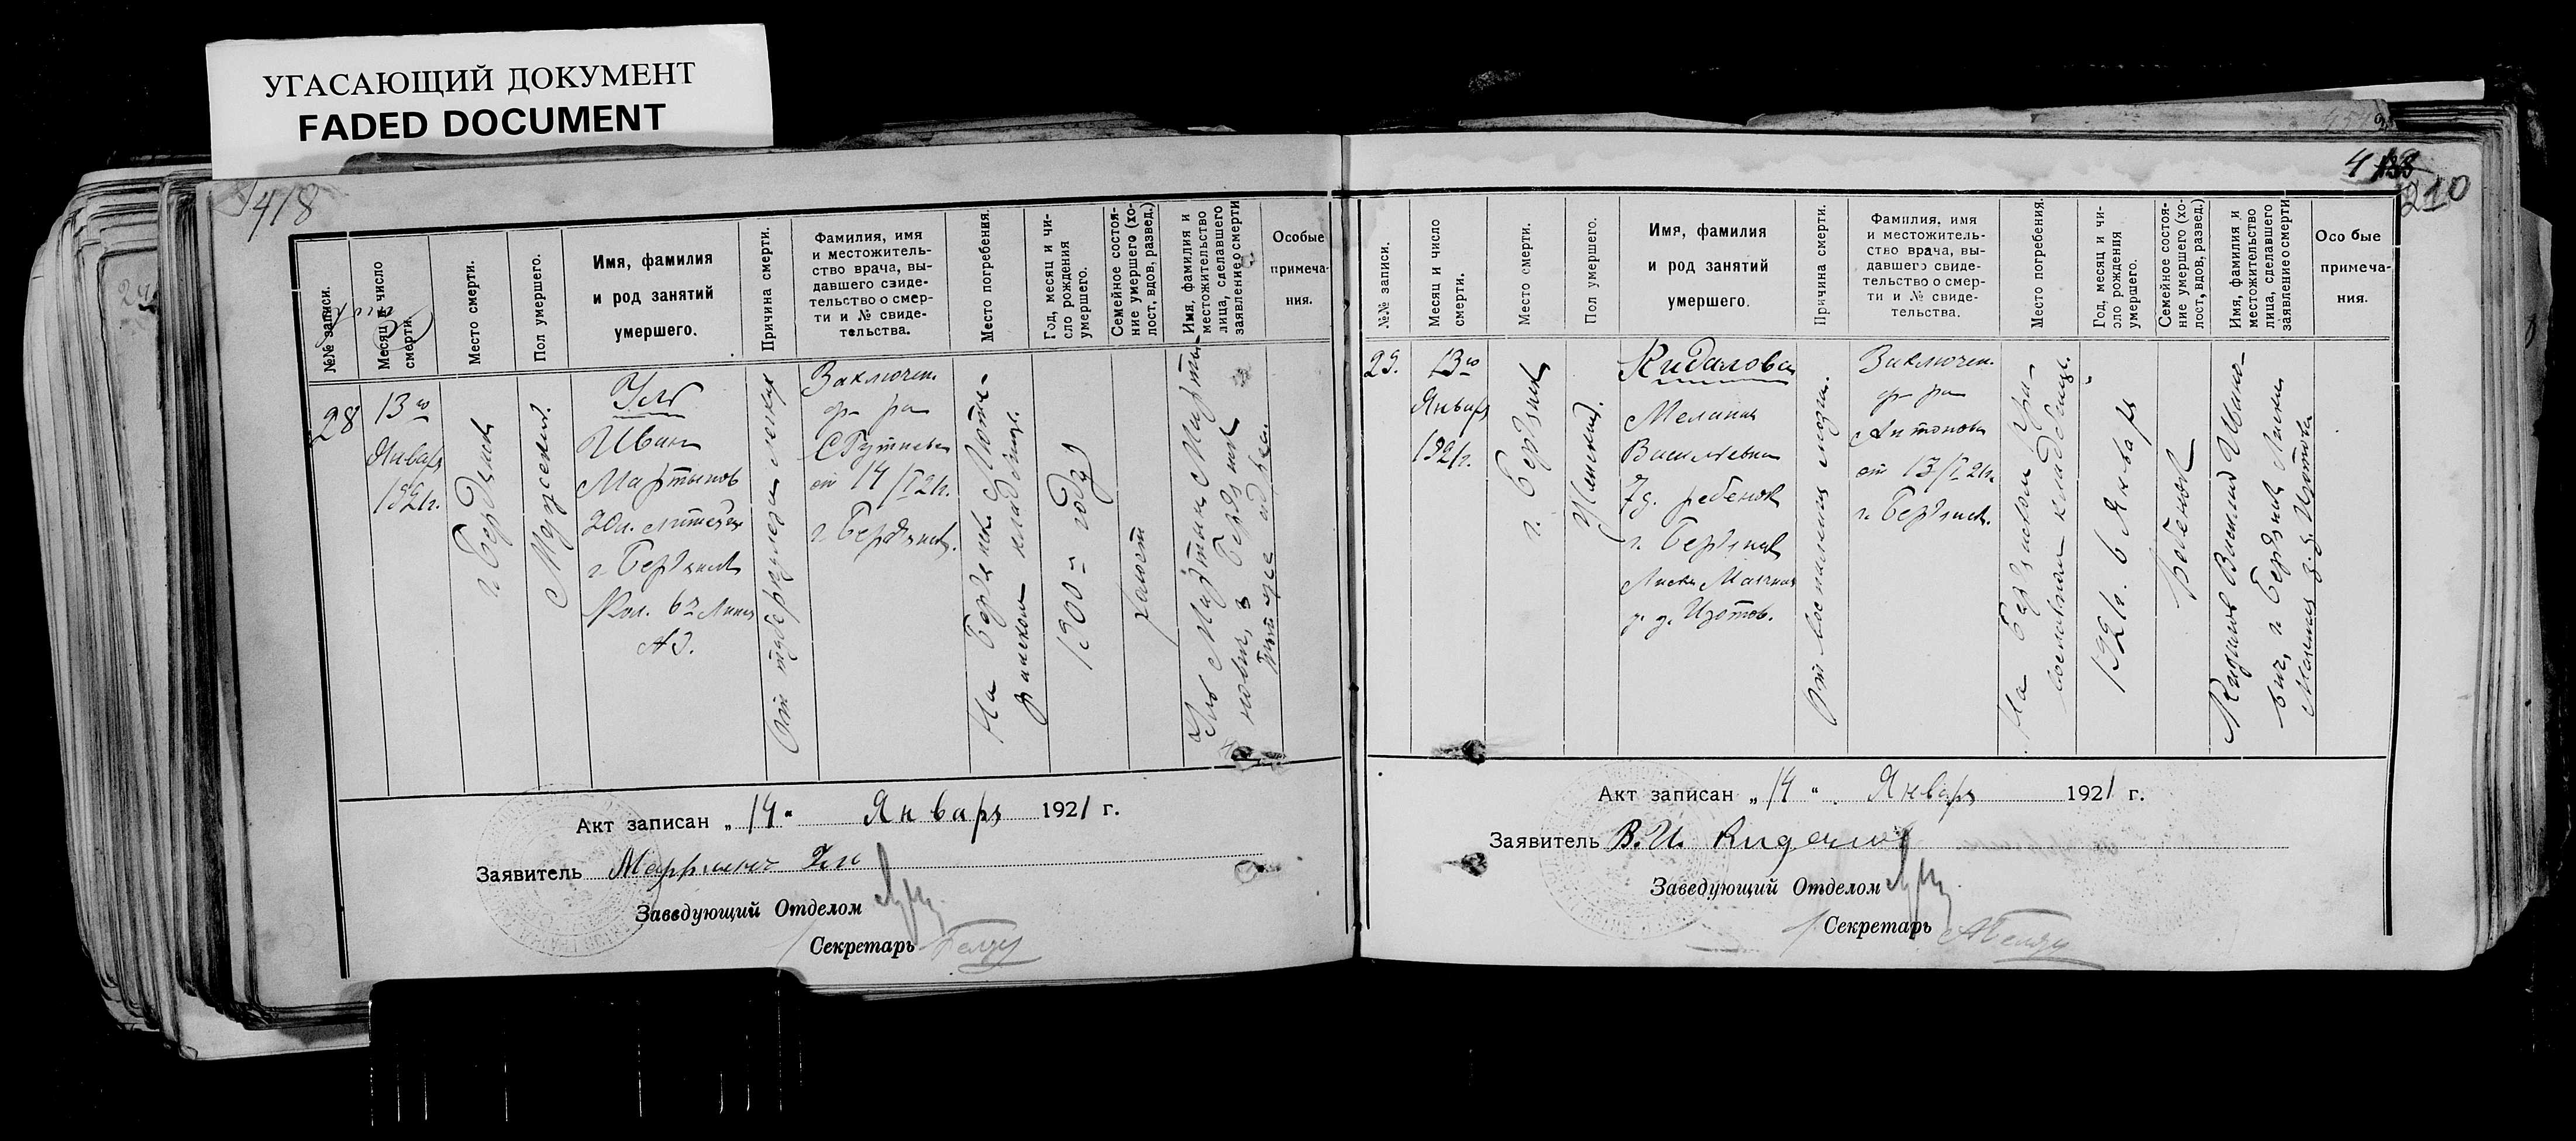 УГАСАЮЩИЙ ДОКУМЕНТ
FADED DOCUMENT
418
№№ записи.
Месяц и число
смерти.
Место смерти.
Пол умершего.
Имя, фамилия
и род занятий
умершего.
Причина смерти.
Фамилия, имя
и местожитель-
ство врача, вы-
давшего свиде-
тельство о смер-
ти и № свиде-
тельства.
Место погребения.
Год, месяц и чи-
сло рождения
умершего.
Семейное состоя-
ние умершего (хо-
лост, вдов, развед.)
Имя, фамилия и
местожительство
лица, сделавшего
заявление о смерти
Особые
примеча-
ния.
28
13го
Января
1921г.
г. Бердянск
Мужской.
Иван
Мартынов
г. Бердянск
От туберкулеза легких
Заключен.
от 14/I 21г.
г. Бердянск.
На Бердянск. Люте-
ранском кладбище.
1900 году
холост
Мартын Марты-
нович, г. Бердянск
Акт записан „14" Января 1921 г.
Заявитель
Заведующий Отделом
Секретарь
4
210
№№ записи.
Месяц и число
смерти.
Место смерти.
Пол умершего.
Имя, фамилия
и род занятий
умершего.
Причина смерти.
Фамилия, имя
и местожитель-
ство врача, вы-
давшего свиде-
тельство о смер-
ти и № свиде-
тельства.
Место погребения.
Год, месяц и чи-
сло рождения
умершего.
Семейное состоя-
ние умершего (хо-
лост, вдов, развед.)
Имя, фамилия и
местожительство
лица, сделавшего
заявление о смерти
Особые
примеча-
ния.
29.
13го
Января
1921г.
г. Бердянск
Женский.
Кидалова
Мелания
Васильевна
7д. ребенок
г. Бердянск
д. Изотов.
От воспаления мозга.
Заключен.
Антонова
от 13/I 21г.
г. Бердянск.
На Бердянском Пра-
вославном кладбище.
1921г. 6 Января
Ребенок
Кидалов Василий Ивано-
вич, г. Бердянск
д. Изотова
Акт записан „14" Января 1921 г.
Заявитель В. И. Кидалов
Заведующий Отделом
Секретарь